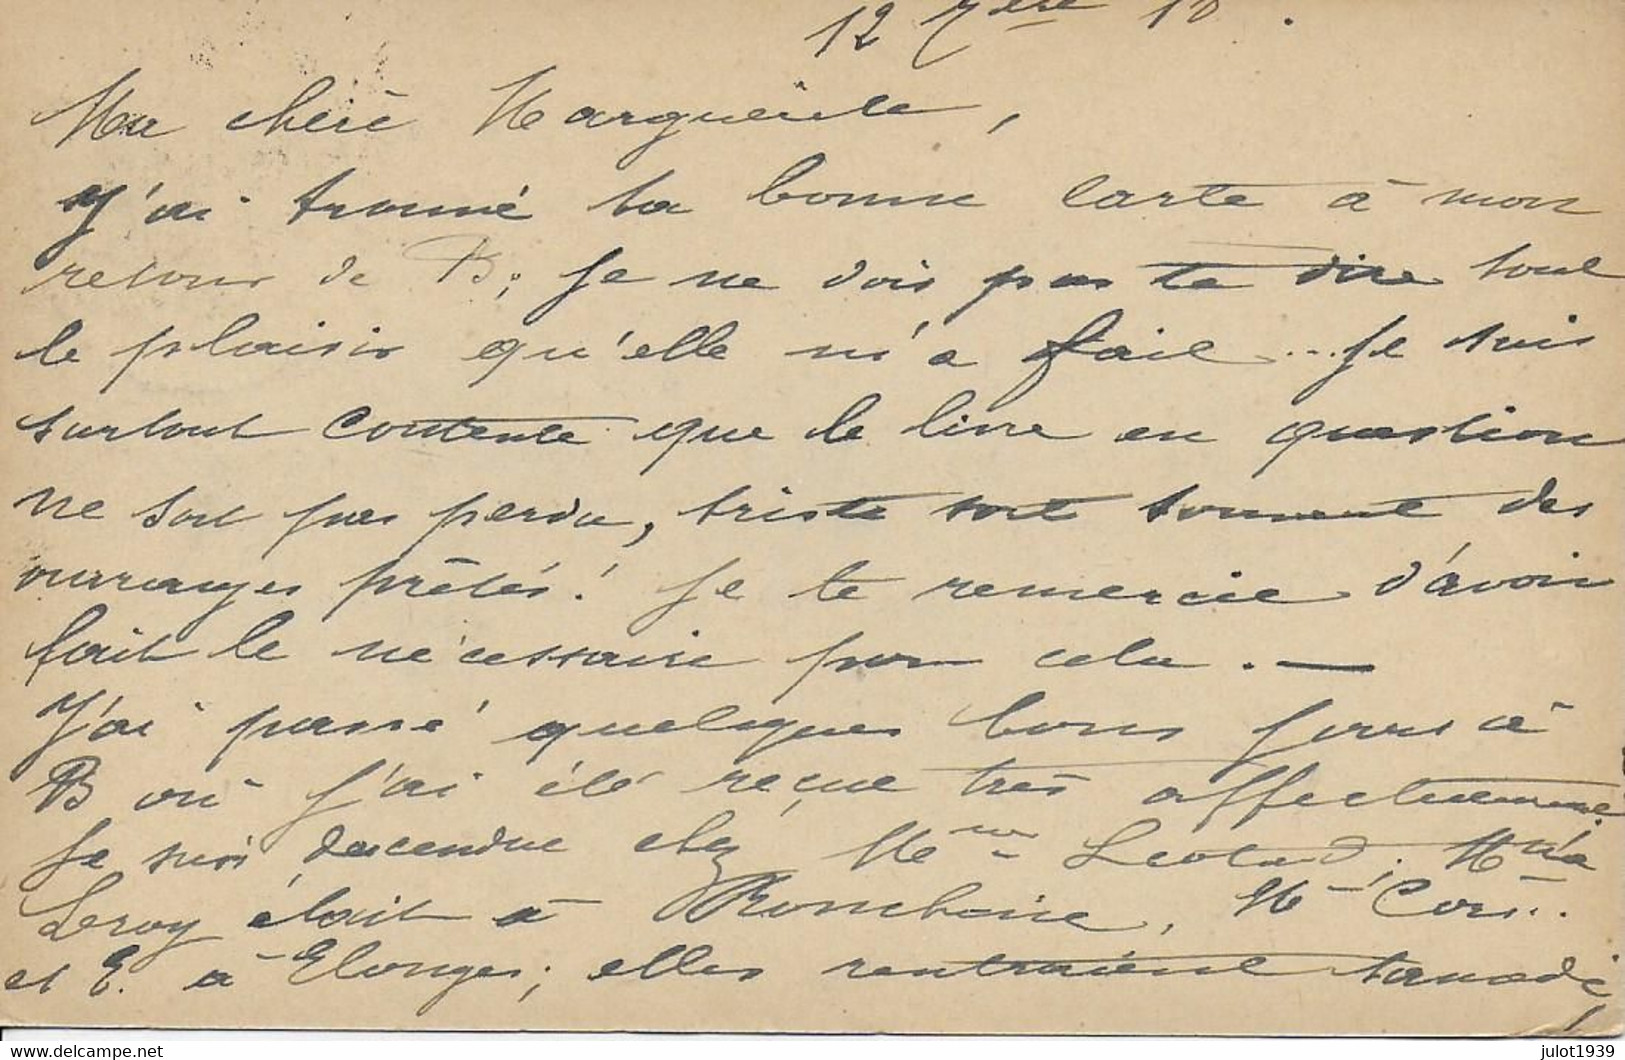 12 7bre 10.
Ma chère Marguerite,
J'ai trouvé ta bonne carte à mon
retour de B; je ne dois pas te dire tout
le plaisir qu'elle m'a fait... Je suis
surtout contente que le livre en question
ne soit pas perdu, triste sort souvent des
ouvrages prêtés! Je te remercie d'avoir
fait le nécessaire pour cela. —
J'ai passé quelques bons jours à
B où j'ai été reçue très affectueusement.
Je suis descendue chez Mme Leotard; Mme
Leroy était à Ronchaine, Me Cori..
et E. à Elouges; elles rentraient samedi,
delcampe.net
julot1939